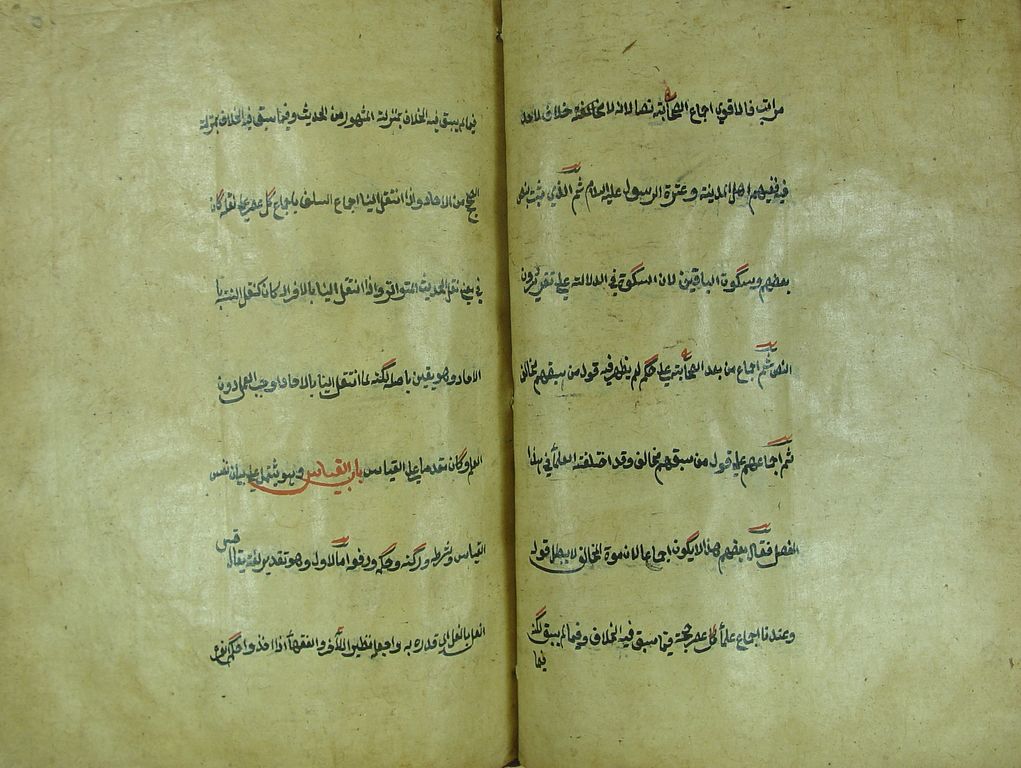 مراتب فالاقوي اجماع الصحابة نصا لانه لا مخالفة خلاف لاحد
فيه ففيهم اهل المدينة وعترة الرسول عليه السلام ثم الذي ثبت بنص
بعضهم وسكوت الباقين لان السكوت في الدلالة علي تقرير دون
النص ثم اجماع من بعد الصحابة علي حكم لم يظهر فيه قول من سبقهم مخالف
ثم اجماعهم علي قول من سبقهم مخالف وقد اختلفت العلمآ في هذا
الفصل فقال بعضهم هذا لا يكون اجماعا لان موت المخالف لا يبطل قوله
وعندنا اجماع علمآ كل عصر حجة فيما سبق فيه الخلاف وفيما لم يسبق لكنه
فيما
فيما لم يسبق فيه الخلاف بمنزلة المشهور من الحديث وفيما سبق فيه الخلاف بمنزلة
الصحيح من الاحاد واذا انتقل الينا اجماع السلف باجماع كل عصر علي نقله كان
في معني نقل الحديث المتواتر واذا انتقل الينا بالافراد كان كنقل السنة با
الاحاد وهو يقين باصله لكنه لما انتقل الينا بالاحاد اوجب العمل دون
العلم وكان مقدما علي القياس باب القياس وهو يشتمل علي بيان نفس
القياس وشرطه وركنه وحكمه ودفعه اما الاول وهو تقدير لغة يقال قس
النعل بالنعل اي قدره به واجعله نظير الآخر والفقهآ اذا اخذوا حكم الفرع